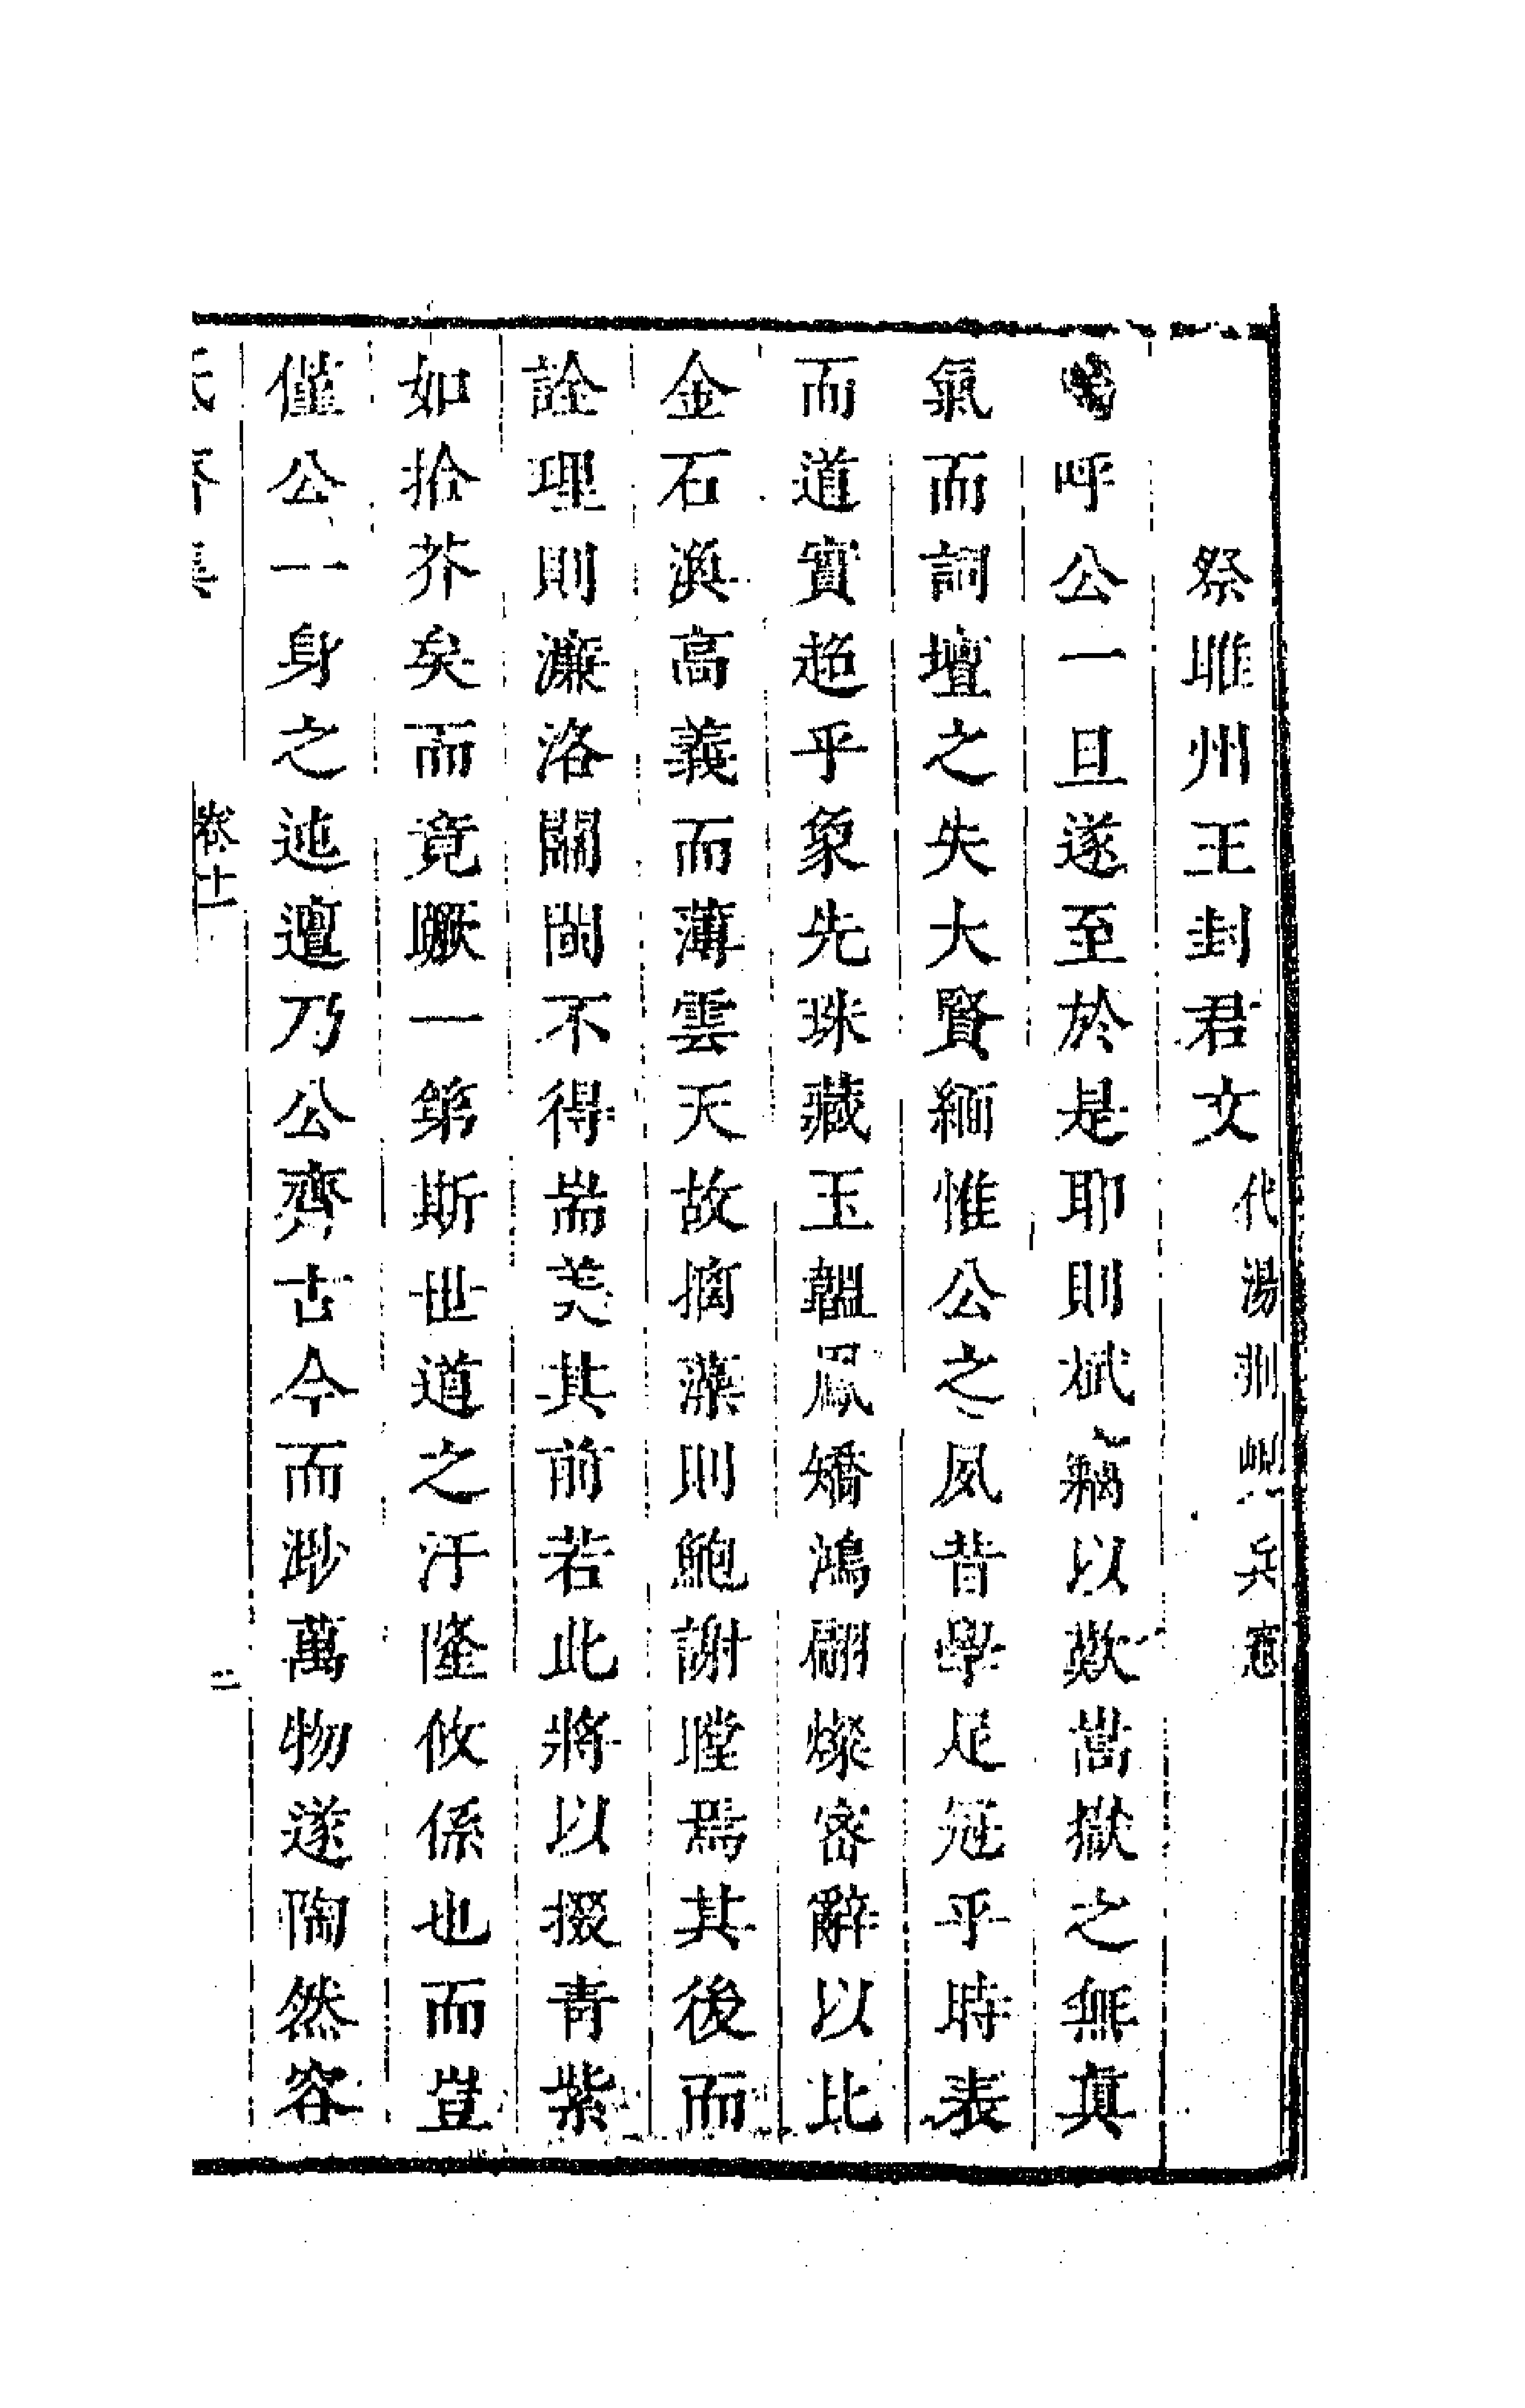 祭睢州王封君文代湯荆峴兵憲
呼公一旦遂至於是耶則斌竊以歎嵩嶽之無真
氣而詞壇之失大賢緬惟公之夙昔學足冠乎時表
而道實超乎象先珠藏玉韞鳳矯鴻翩燦密辭以比
金石渙高義而薄雲天故摛藻則鮑謝瞠焉其後而
詮理則濂洛關閩不得耑美其前若此將以掇青紫
如拾芥矣而竟蹶一第斯世道之汙隆攸係也而豈
僅公一身之迍邅乃公齊古今而渺萬物遂陶然容
卷十一
二